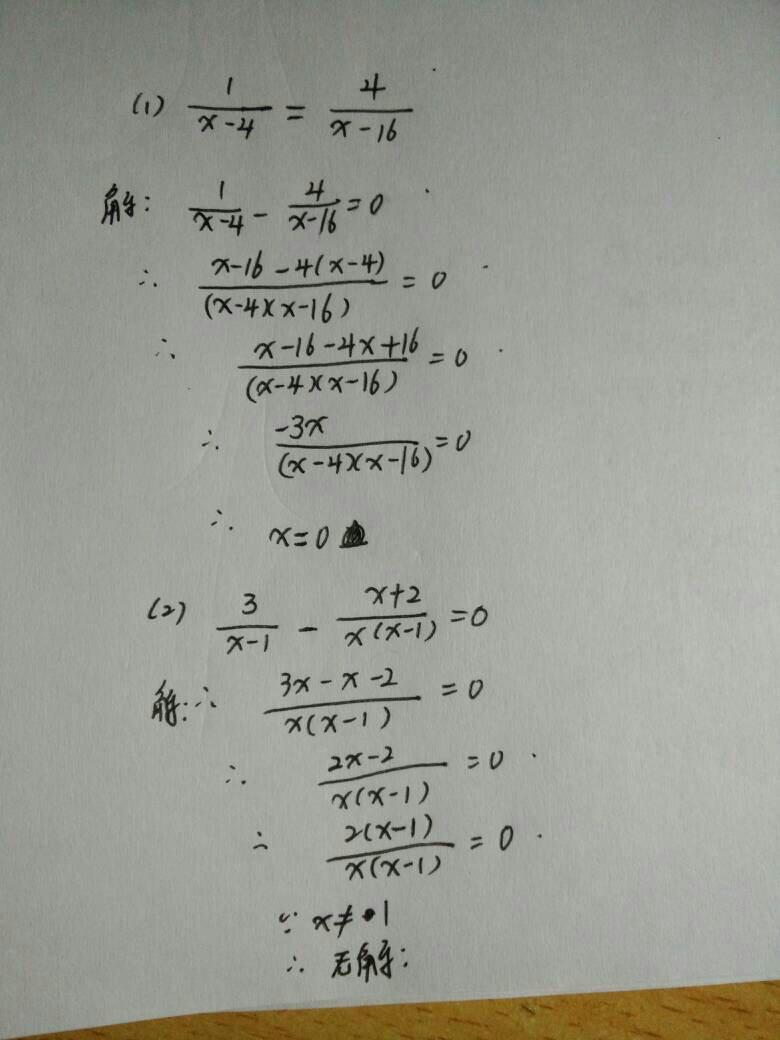 (1) 1/(x-4) = 4/(x-16)
解: 1/(x-4) - 4/(x-16) = 0
∴ (x-16-4(x-4))/((x-4)(x-16)) = 0
∴ (x-16-4x+16)/((x-4)(x-16)) = 0
∴ -3x/((x-4)(x-16)) = 0
∴ x=0
(2) 3/(x-1) - (x+2)/(x(x-1)) = 0
解: ∴ (3x-x-2)/(x(x-1)) = 0
∴ (2x-2)/(x(x-1)) = 0
∴ 2(x-1)/(x(x-1)) = 0
∵ x≠1
∴ 无解: